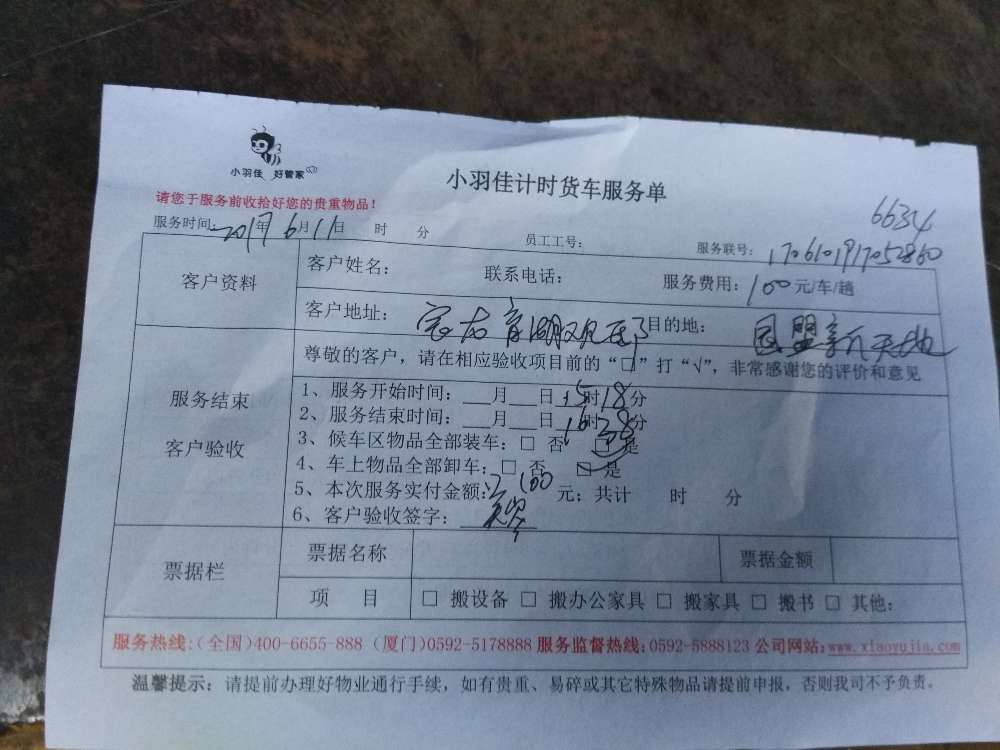 小羽佳 好管家
小羽佳计时货车服务单
请您于服务前收拾好您的贵重物品！
66334
服务时间：2017年6月11日 时 分 员工工号： 服务联号：1706101917052860
客户资料
客户姓名： 联系电话： 服务费用：100元/车/趟
客户地址： 目的地：国盟新天地
服务结束
客户验收
尊敬的客户，请在相应验收项目前的“□”打“√”，非常感谢您的评价和意见
1、服务开始时间：___月___日15时18分
2、服务结束时间：___月___日16时38分
3、候车区物品全部装车：□ 否 □ 是
4、车上物品全部卸车：□ 否 □ 是
5、本次服务实付金额：100 元；共计 时 分
6、客户验收签字：
票据栏
票据名称 票据金额
项 目 □ 搬设备 □ 搬办公家具 □ 搬家具 □ 搬书 □ 其他：
服务热线：（全国）400-6655-888（厦门）0592-5178888 服务监督热线：0592-5888123 公司网站：www.xiaoyujia.com
温馨提示：请提前办理好物业通行手续，如有贵重、易碎或其它特殊物品请提前申报，否则我司不予负责。